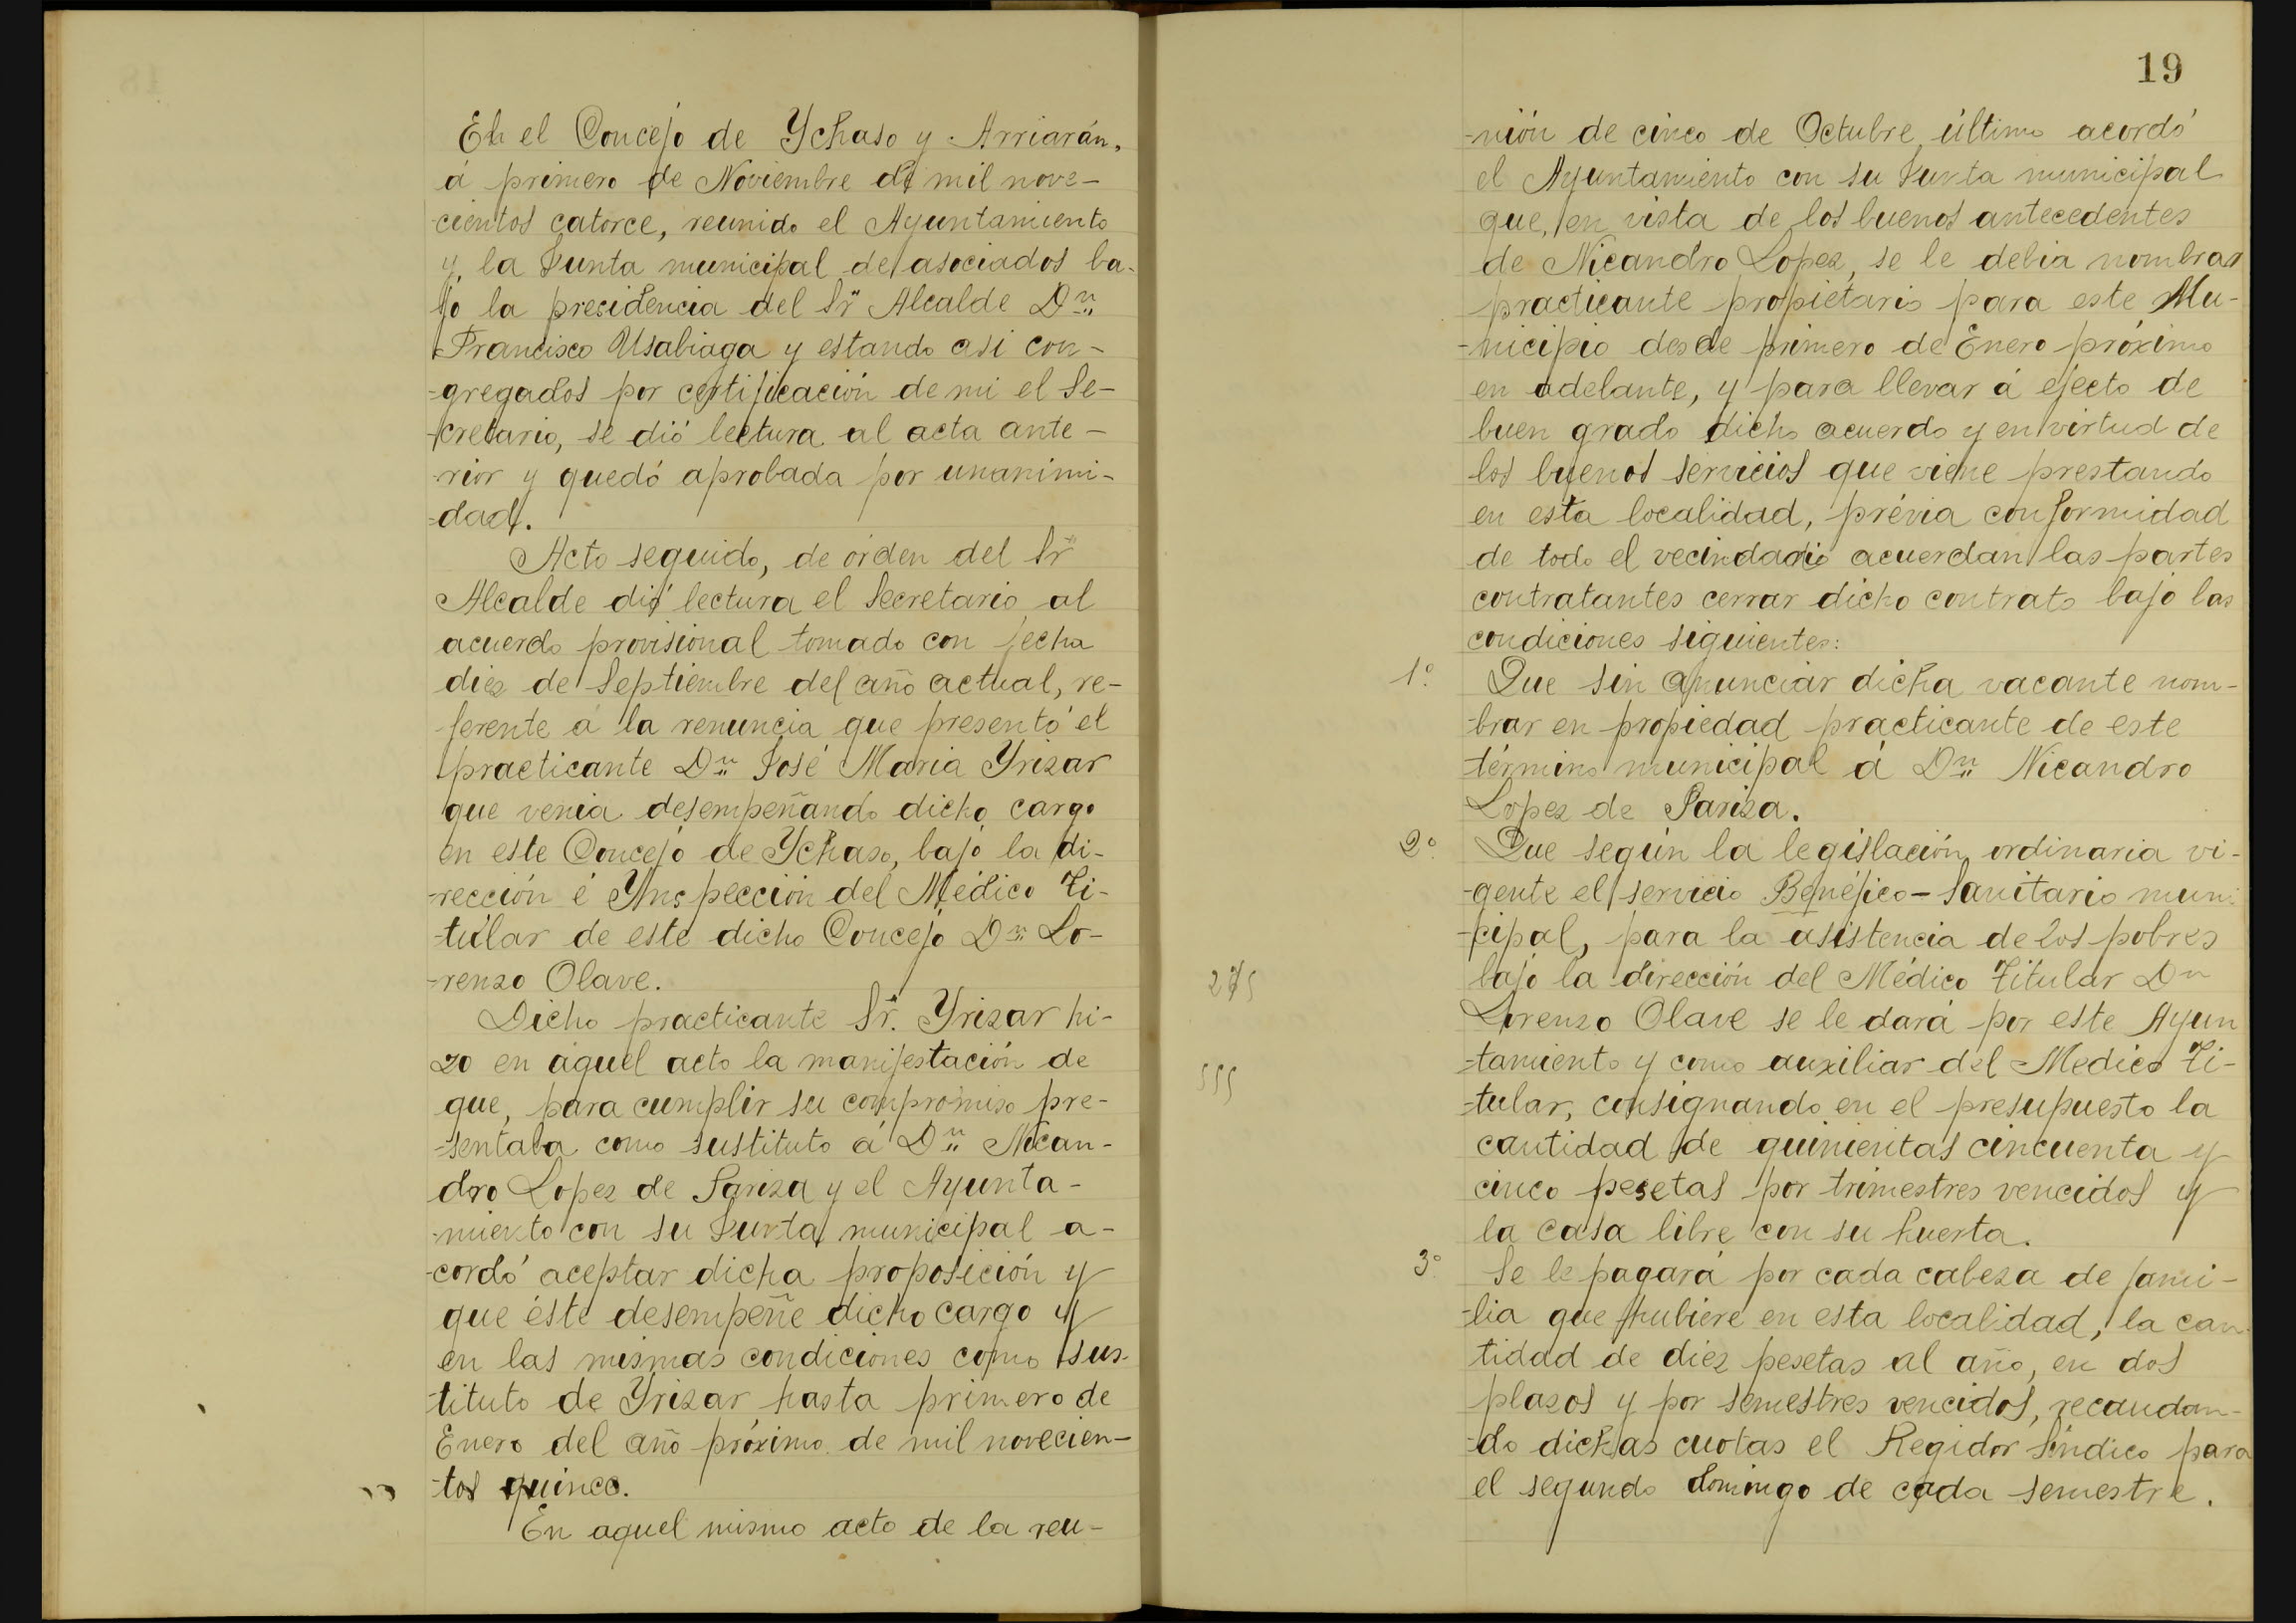 En el Concejo de Ychaso y Arriarán,
á primero de Noviembre de mil nove-
-cientos catorce, reunido el Ayuntamiento
y la Junta municipal de asociados ba-
jo la presidencia del Sr Alcalde Dn
Francisco Usabiaga y estando asi con-
-gregados por certificación de mi el Se-
-cretario, se dió lectura al acta ante-
-rior y quedó aprobada por unanimi-
-dad.
Acto seguido, de órden del Sr
Alcalde dió lectura el Secretario al
acuerdo provisional tomado con fecha
diez de Septiembre del año actual, re-
-ferente á la renuncia que presentó el
practicante Dn José Maria Yrizar
que venia desempeñando dicho cargo
en este Concejo de Ychaso, bajo la di-
-rección é Ynspección del Médico Ti-
-tular de este dicho Concejo Dn Lo-
-renzo Olave.
Dicho practicante Sr. Yrizar hi-
zo en aquel acto la manifestación de
que, para cumplir su compromiso pre-
-sentaba como sustituto á Dn Nican-
dro Lopez de Pariza y el Ayunta-
-miento con su Junta municipal a-
-cordó aceptar dicha proposición y
que éste desempeñe dicho cargo y
en las mismas condiciones como sus-
-tituto de Yrizar hasta primero de
Enero del año próximo de mil novecien-
-tos quince.
En aquel mismo acto de la reu-
19
-nión de cinco de Octubre último acordó
el Ayuntamiento con su Junta municipal
que, en vista de los buenos antecedentes
de Nicandro Lopez, se le debia nombrar
practicante propietario para este Mu-
-nicipio desde primero de Enero próximo
en adelante, y para llevar á efecto de
buen grado dicho acuerdo y en virtud de
los buenos servicios que viene prestando
en esta localidad, prévia conformidad
de todo el vecindario acuerdan las partes
contratantes cerrar dicho contrato bajo las
condiciones siguientes:
1º. Que sin anunciar dicha vacante nom-
-brar en propiedad practicante de este
término municipal á Dn Nicandro
Lopez de Pariza.
2º. Que según la legislación ordinaria vi-
-gente el servicio Benéfico-Sanitario muni-
-cipal, para la asistencia de los pobres
bajo la dirección del Médico Titular Dn
Lorenzo Olave se le dará por este Ayun
-tamiento y como auxiliar del Medico Ti-
-tular, consignando en el presupuesto la
cantidad de quinientas cincuenta y
cinco pesetas por trimestres vencidos y
la casa libre con su huerta.
555
3º. Se le pagará por cada cabeza de fami-
-lia que hubiere en esta localidad, la can-
tidad de diez pesetas al año, en dos
plazos y por semestres vencidos, recaudan-
-do dichas cuotas el Regidor Síndico para
el segundo domingo de cada semestre.